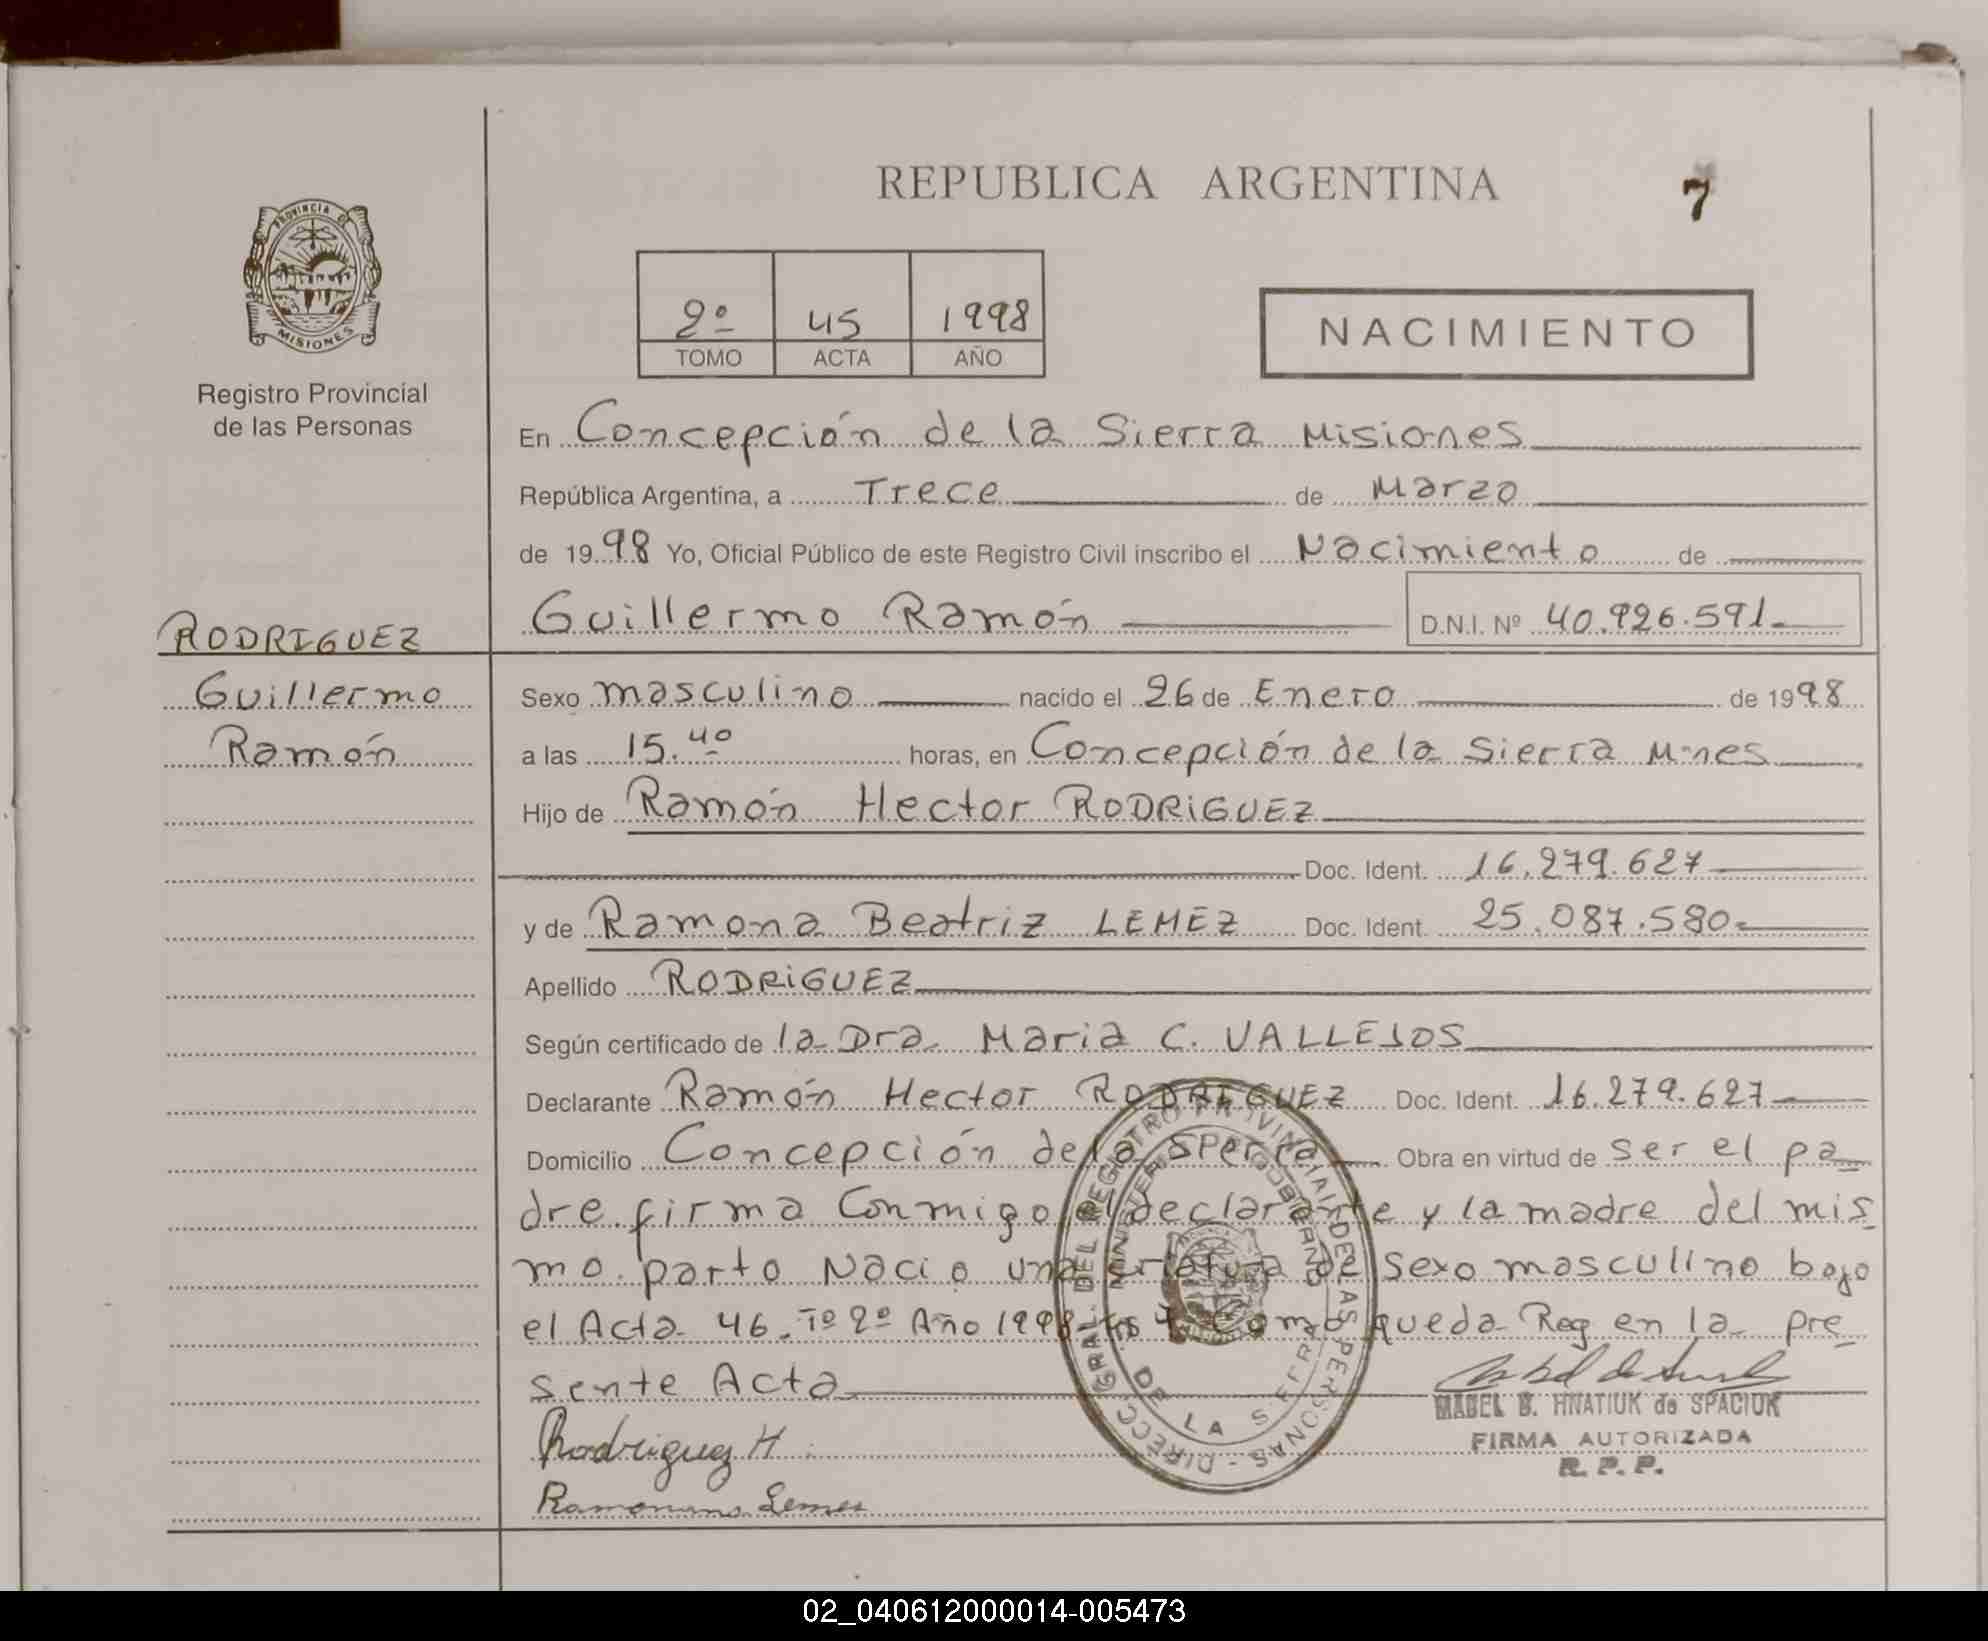 REPUBLICA ARGENTINA
7
PROVINCIA DE
MISIONES
Registro Provincial
de las Personas
2º 45 1998
TOMO ACTA AÑO
NACIMIENTO
En Concepción de la Sierra Misiones
República Argentina, a Trece de Marzo
de 1998 Yo, Oficial Público de este Registro Civil inscribo el Nacimiento de
Guillermo Ramón D.N.I. Nº 40.926.591.-
RODRIGUEZ
Guillermo
Ramón
Sexo masculino nacido el 26 de Enero de 1998
a las 15.40 horas, en Concepción de la Sierra M-nes
Hijo de Ramón Hector RODRIGUEZ
Doc. Ident. 16.279.627
y de Ramona Beatriz LEMEZ Doc. Ident. 25.087.580-
Apellido RODRIGUEZ
Según certificado de la Dra. Maria C. VALLEJOS
Declarante Ramón Hector RODRIGUEZ Doc. Ident. 16.279.627
Domicilio Concepción de la Sierra Obra en virtud de ser el pa-
dre firma Conmigo el declarante y la madre del mis-
mo parto Nacio una criatura de sexo masculino bajo
el Acta 46. Tº 2º Año 1998 Como queda Reg en la pre-
sente Acta
Rodriguez H.
Lemes
MABEL B. HNATIUK de SPACIUK
FIRMA AUTORIZADA
R. P. P.
DIRECC. GRAL. DEL REGISTRO PROVINCIAL DE LAS PERSONAS
MINISTERIO DE GOBIERNO
DE LA SIERRA
02_040612000014-005473